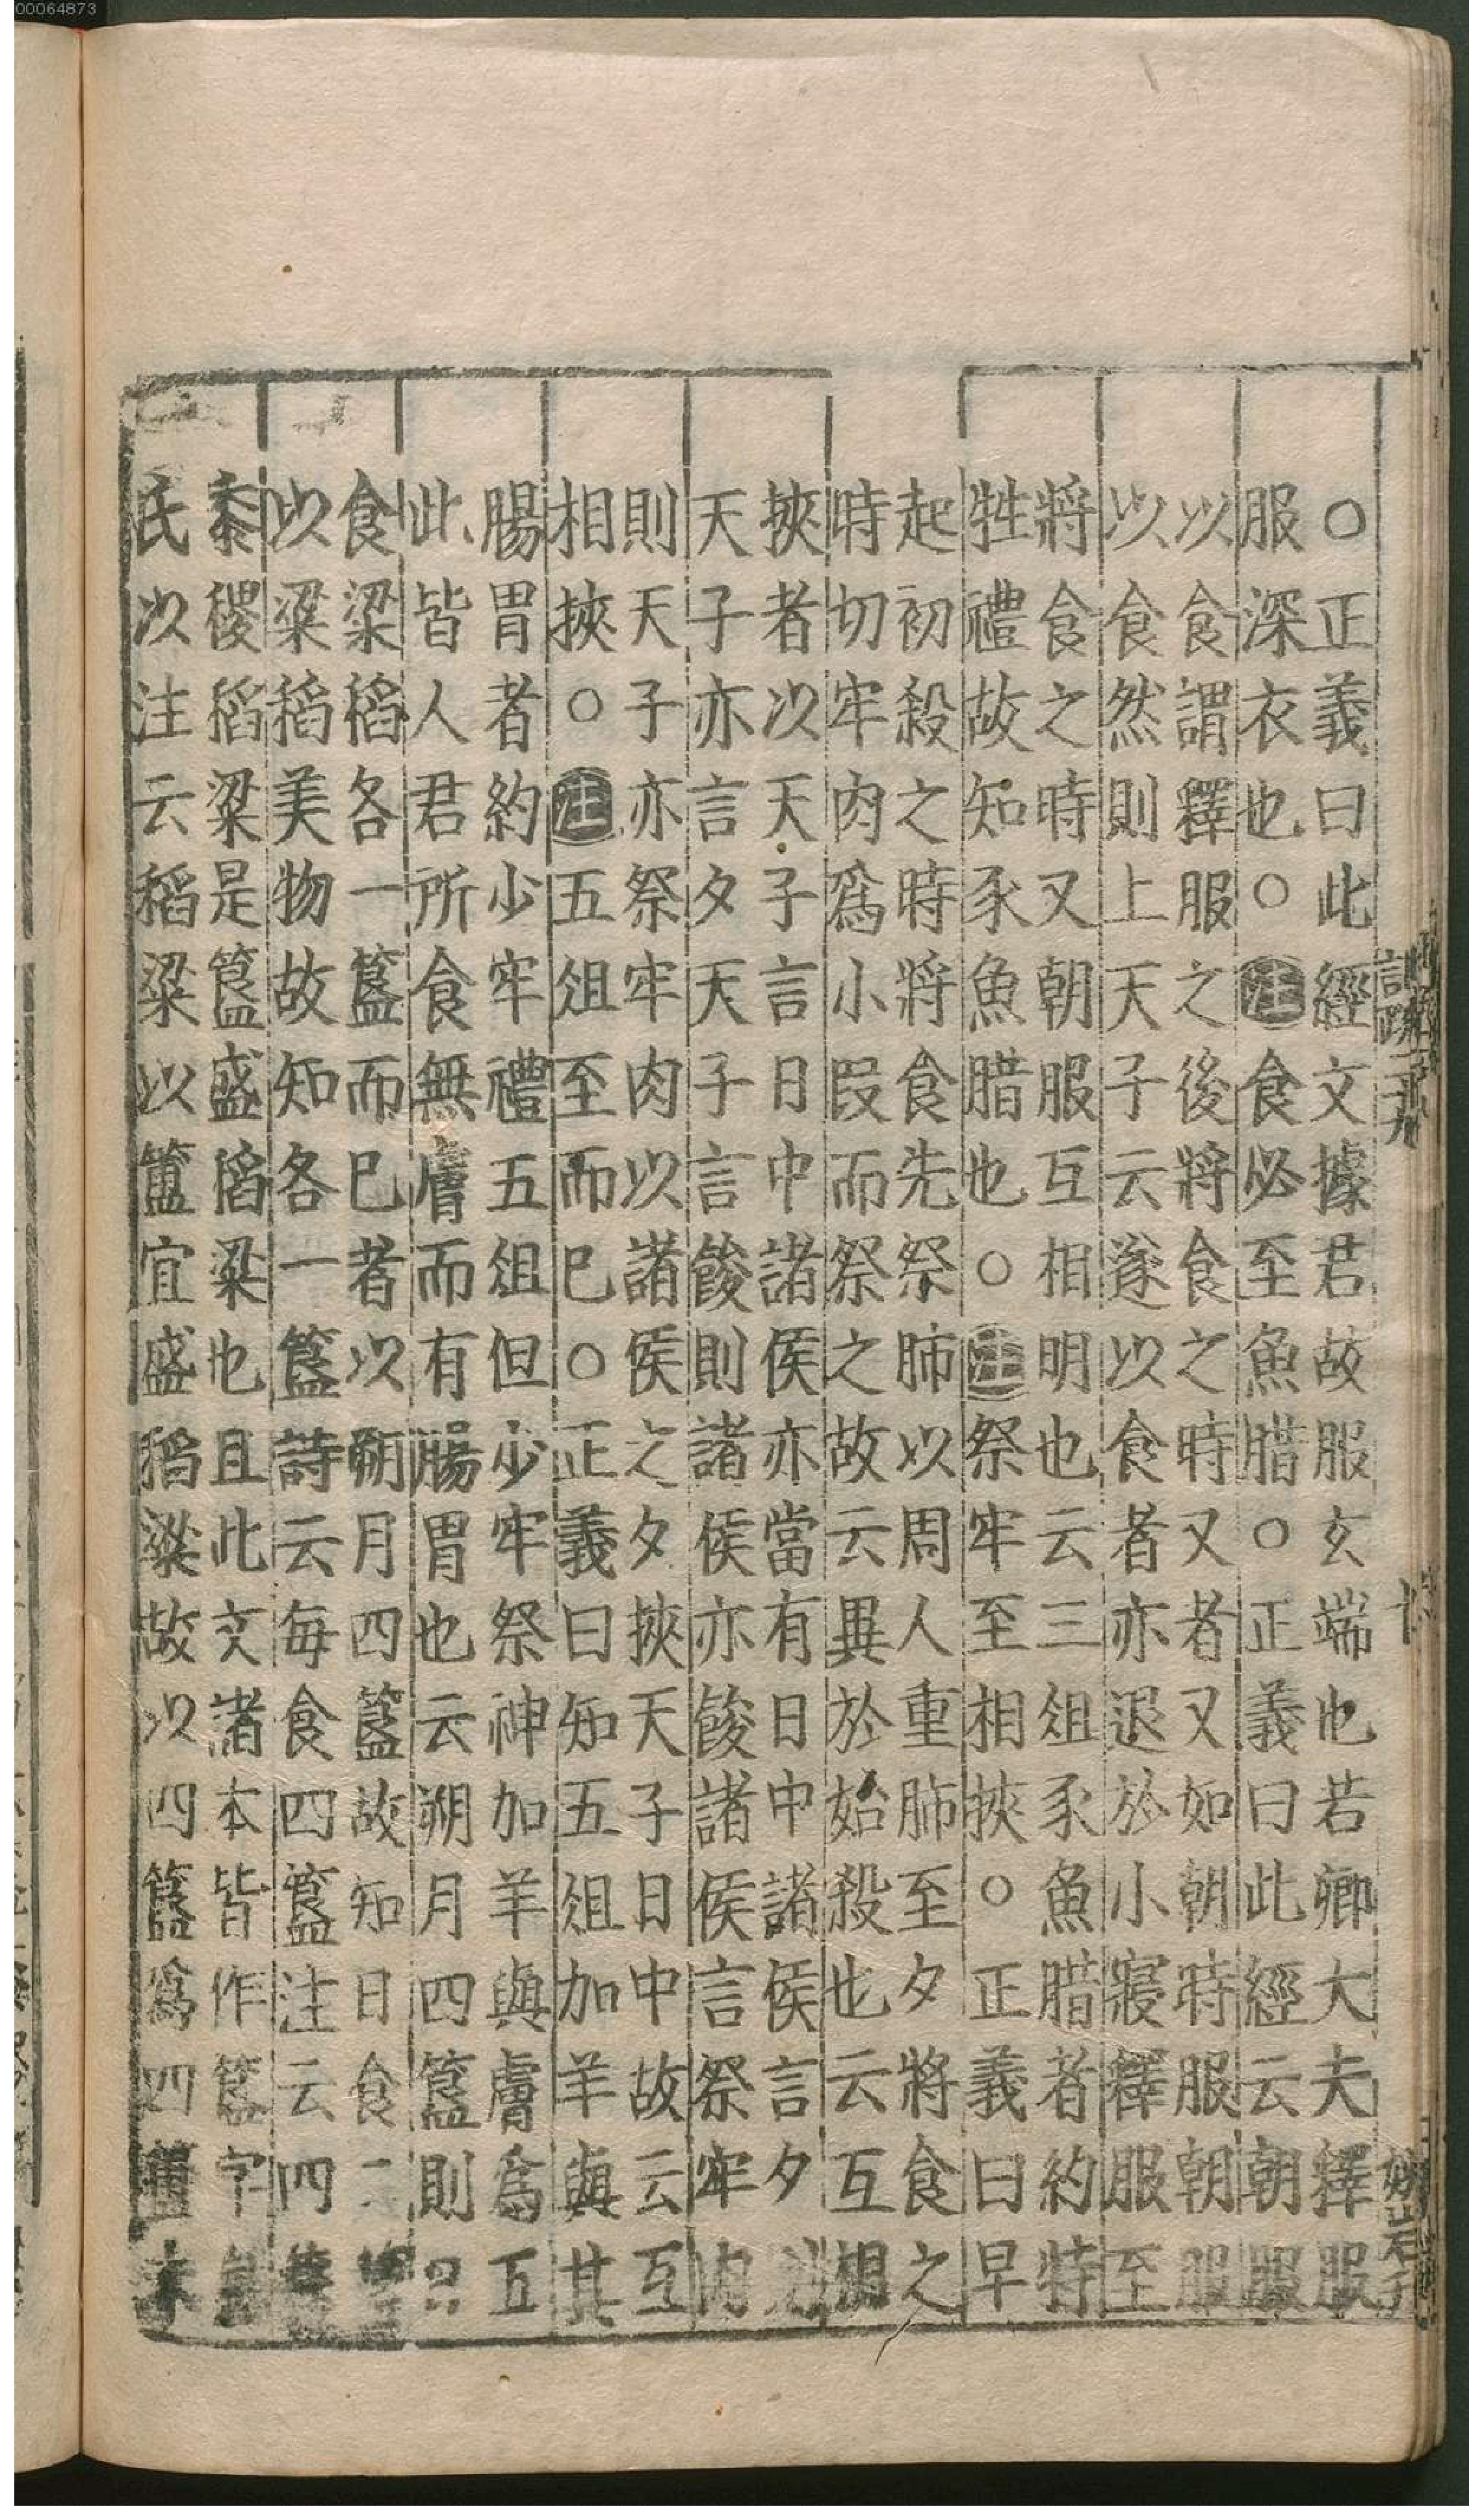 00064873
○正義曰此經文據君故服玄端也若卿大夫釋服
服深衣也○注食必至魚腊○正義曰此經云朝服
以食謂釋服之後將食之時又者又如朝時服朝服
以食然則上天子云遂以食者亦退於小寢釋服至
將食之時又朝服互相明也云三俎豕魚腊者約特
牲禮故知豕魚腊也○注祭牢至相挾○正義曰早
起初殺之時將食先祭肺以周人重肺至夕將食之
時切牢肉爲小段而祭之故云異於始殺也云互相
挾者以天子言日中諸侯亦當有日中諸侯言夕
天子亦言夕天子言餕則諸侯亦餕諸侯言祭牢肉
則天子亦祭牢肉以諸侯之夕挾天子日中故云互
相挾○注五俎至而已○正義曰知五俎加羊與其
腸胃者約少牢禮五俎但少牢祭神加羊與膚爲五
此皆人君所食無膚而有腸胃也云朔月四簋則
食粱稻各一簋而已者以朔月四簋故知日食二
以粱稻美物故知各一簋詩云每食四簋注云四
黍稷稻粱是簋盛稻粱也且此文諸本皆作簋字
氏以注云稻粱以簠宜盛稻粱故以四簋爲四簠未